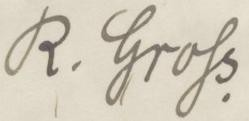 R. Groſs.